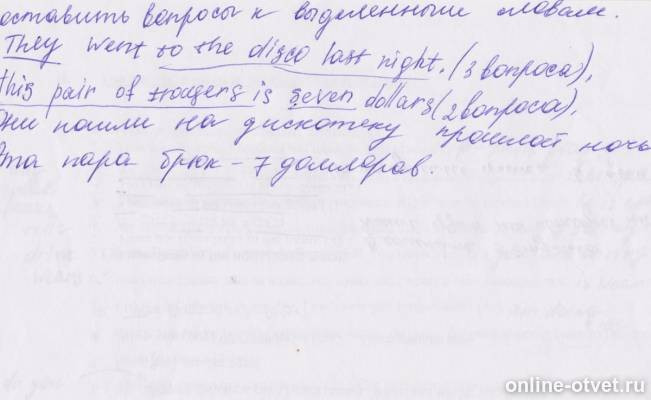 оставить вопросы к выделенным словам.
They went to the disco last night. (3 вопроса),
this pair of trougers is seven dollars (2 вопроса),
Они пошли на дискотеку прошлой ночь
Эта пара брюк - 7 долларов.
online-otvet.ru